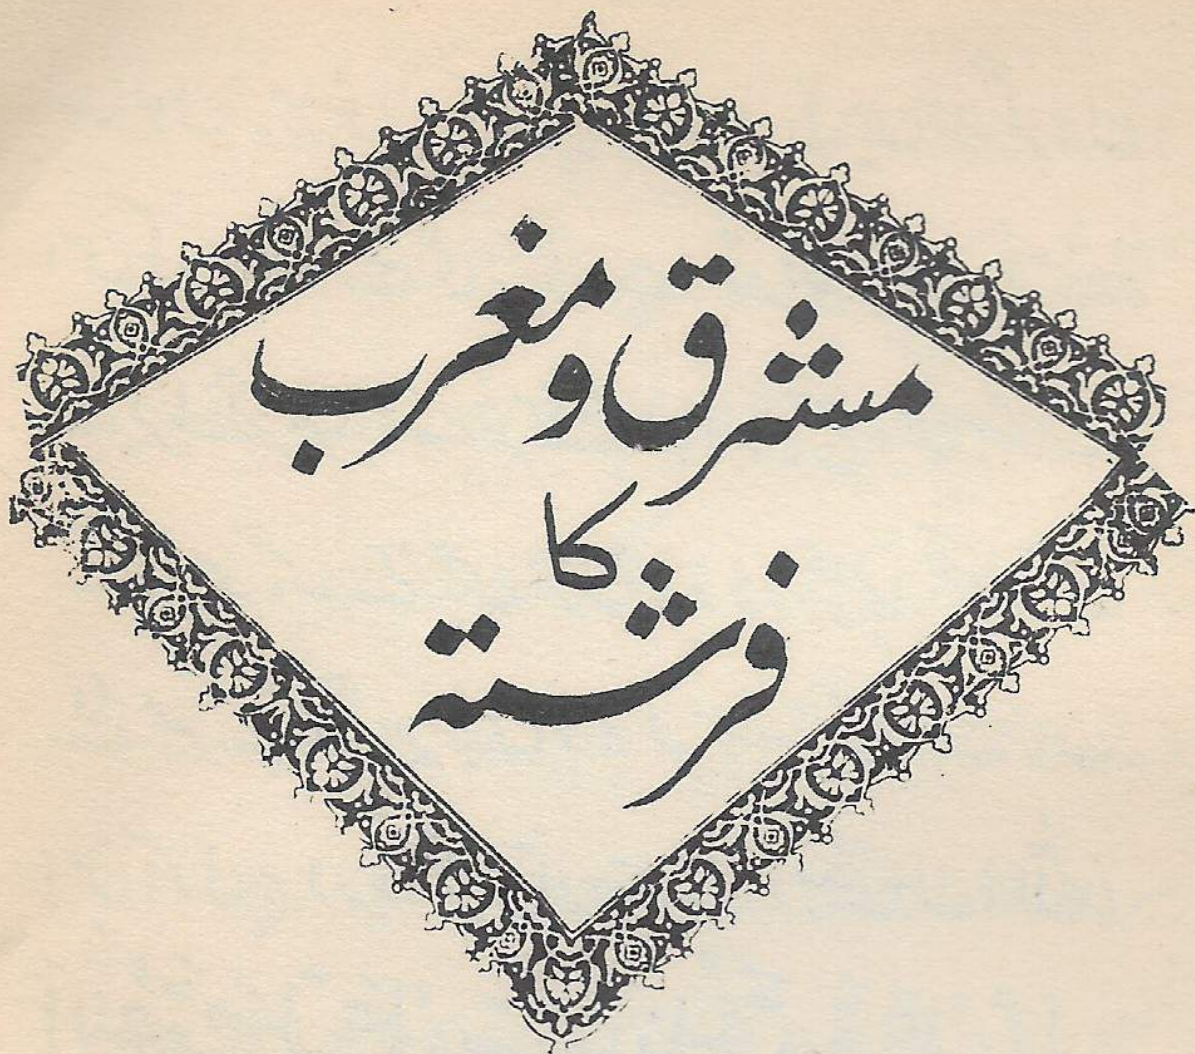 مشرق و مغرب
کا
فرشتہ